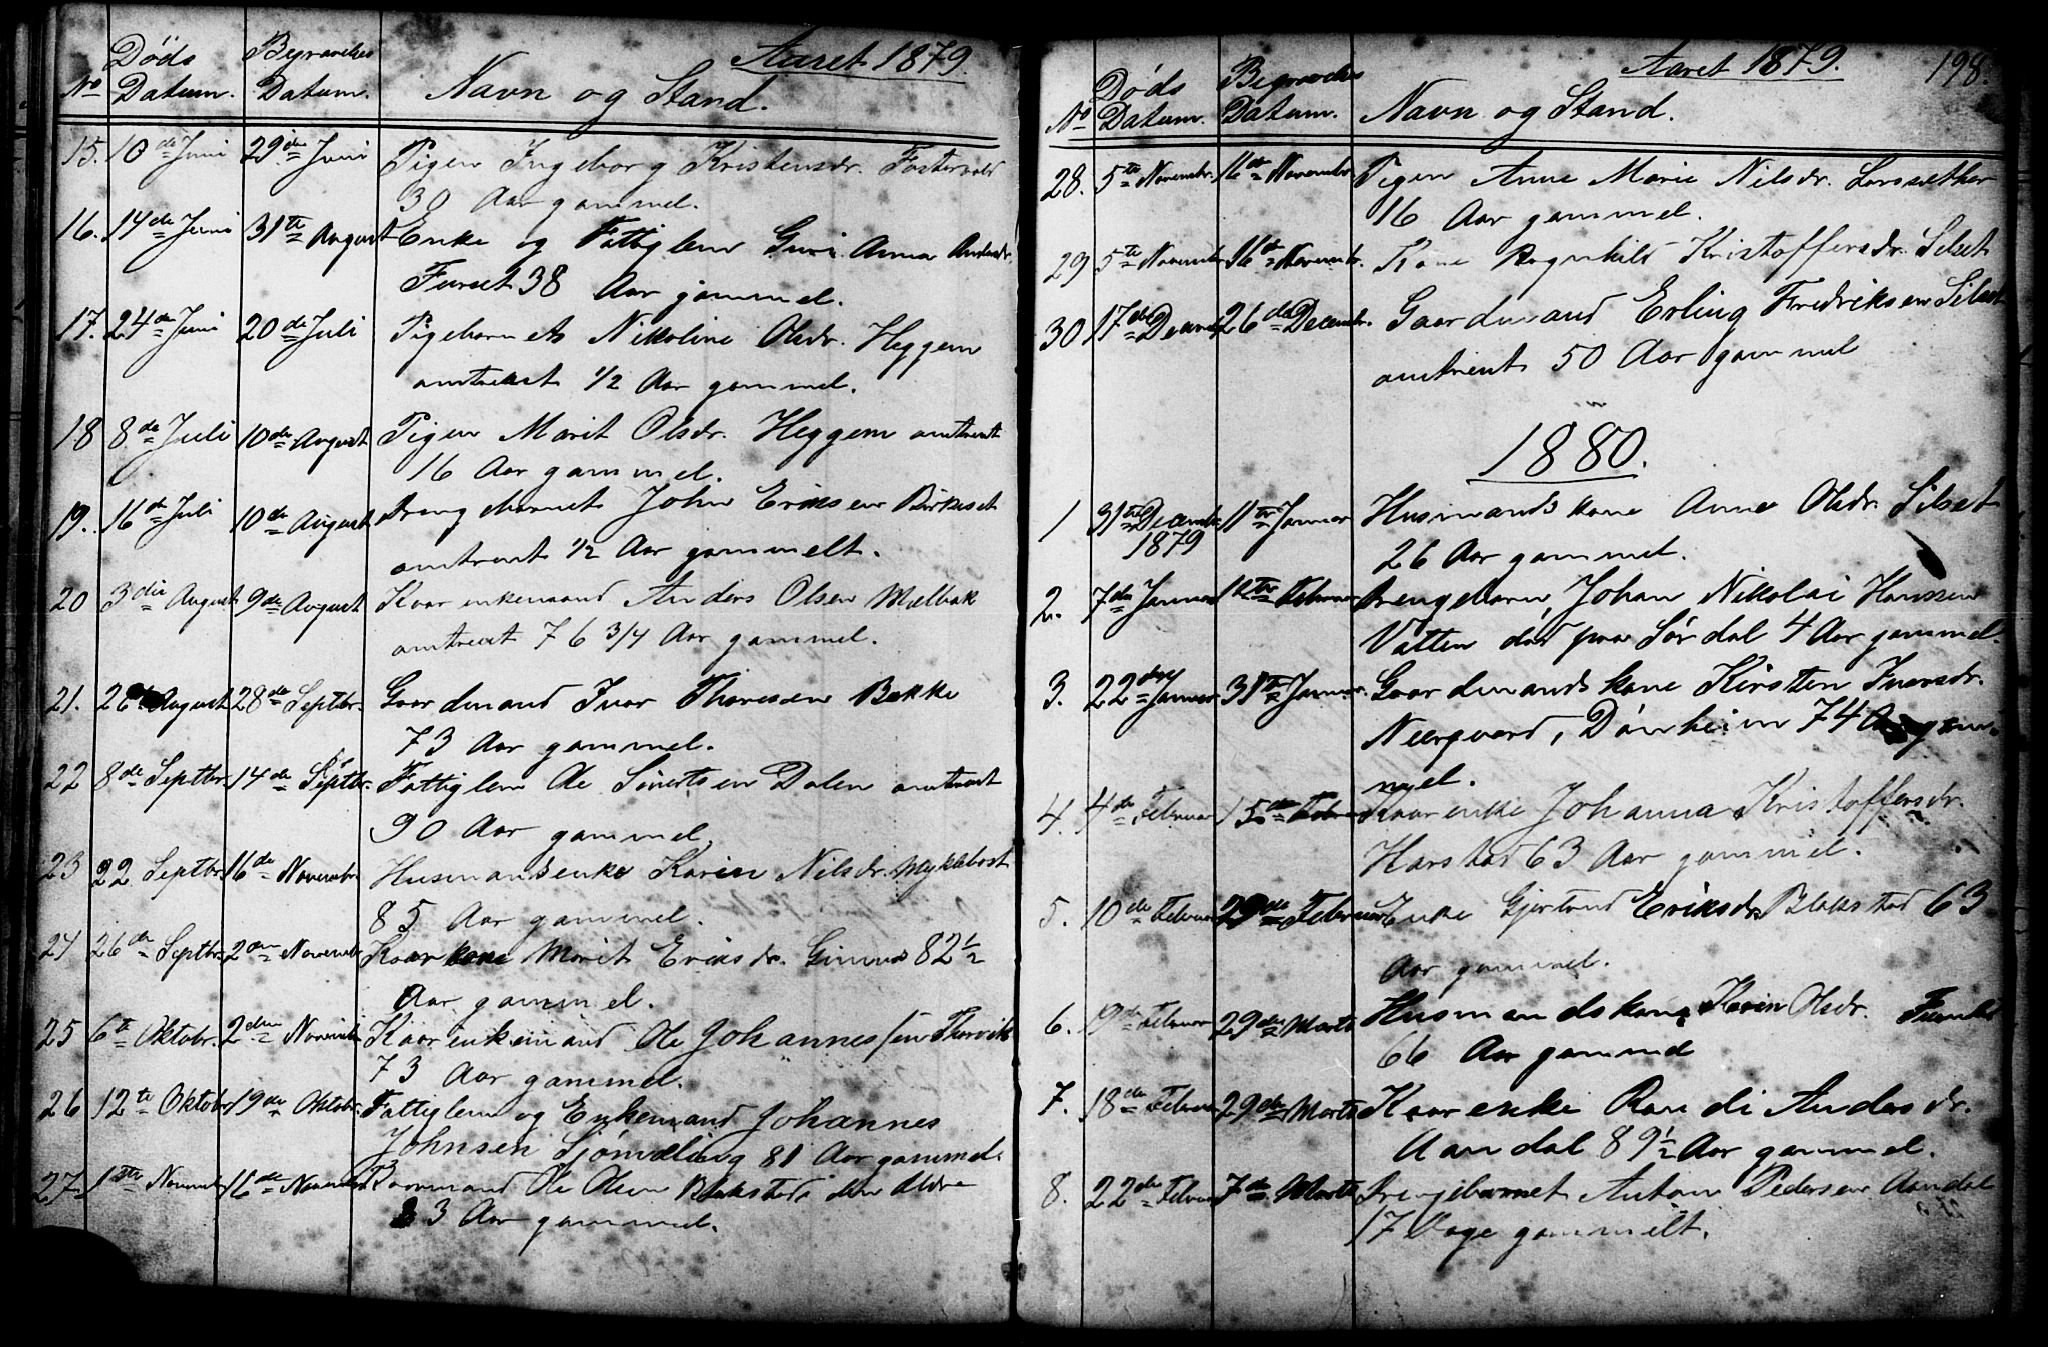 Aaret 1879.
No Døds Datum. Begravelses Datum. Navn og Stand.
15. 10de Juni 29de Juni Pigen Ingeborg Kristensdr. Fostervold
30 Aar gammel.
16. 14de Juni 31te August Enke og Fattiglem Guri Anna Andersdr.
Furset 38 Aar gammel.
17. 24de Juni 20de Juli Pigebarnet Nikoline Olsdr. Heggem
omtrent 1/2 Aar gammel.
18 8de Juli 10de August Pigen Marit Olsdr. Heggem omtrent
16 Aar gammel.
19. 16de Juli 10de August Drengebarnet John Eriksen Birkeset
omtrent 1/2 Aar gammelt.
20 3die August 9de August Kaarenkemand Anders Olsen Mælbak
omtrent 76 3/4 Aar gammel.
21. August 28de Septbr. Gaardmand Ivar Thoresen Bakke
73 Aar gammel.
22 8de Septbr. 14de Septbr. Fattiglem Ole Sivertsen Dalen omtrent
90 Aar gammel
23 22 Septbr. 16de Novembr. Husmandsenke Karen Nilsdr. Myklebost
85 Aar gammel.
24 26de Septbr. 2den Novembr Kaarkone Marit Eriksdr. 82 1/2
Aar gammel.
25 6te Oktobr. 2den Novembr Kaarenkemand Ole Johannessen Thorvik
73 Aar gammel.
26 12te Oktobr 19de Oktobr. Fattiglem og Enkemand Johannes
Johnsen Sjømæling 81 Aar gammel.
27 1ste Novembr 16de Novembr Kaarmand Ole Olsen Blakstad den Ældre
83 Aar gammel.
Aaret 1879. 198.
No Døds Datum. Begravelses Datum. Navn og Stand.
28. 5te Novembr. 16de Novembr Pigen Anne Marie Nilsdr. Larssæther
16 Aar gammel.
29 5te Novembr 16de Novembr. Kone Ragnhild Kristoffersdr. Silset
30 17de Decembr 26de Decembr. Gaardmand Erling Fredriksen Silset
omtrent 50 Aar gammel
1880.
1 31te Decembr 1879 11te Januar Husmandskone Anne Olsdr. Silset
26 Aar gammel.
2. 7de Januar Februar Drengebarn, Johan Nikolai Hanssen
Vatten død paa Sørdal 4 Aar gammel.
3. 22de Januar 31te Januar. Gaardmandskone Kirsten Iversdr.
Neergaard, 74 Aar gam-
mel.
4. 4de Februar 15de Februar Kaarenke Johanna Kristoffersdr.
Harstad 63 Aar gammel.
5. 10de Februar 29de Februar Enke Gjertrud Eriksdr Blakstad 63
Aar gammel.
6. 19de Februar 29de Marts Husmandskone Karen Olsdr.
66 Aar gammel
7. 18de Februar 29de Marts Kaarenke Randi Andersdr.
Aandal 89 1/2 Aar gammel.
8. 22de Februar 7de Marts Drengebarnet Anton Pedersen Aandal
17 Dage gammelt.